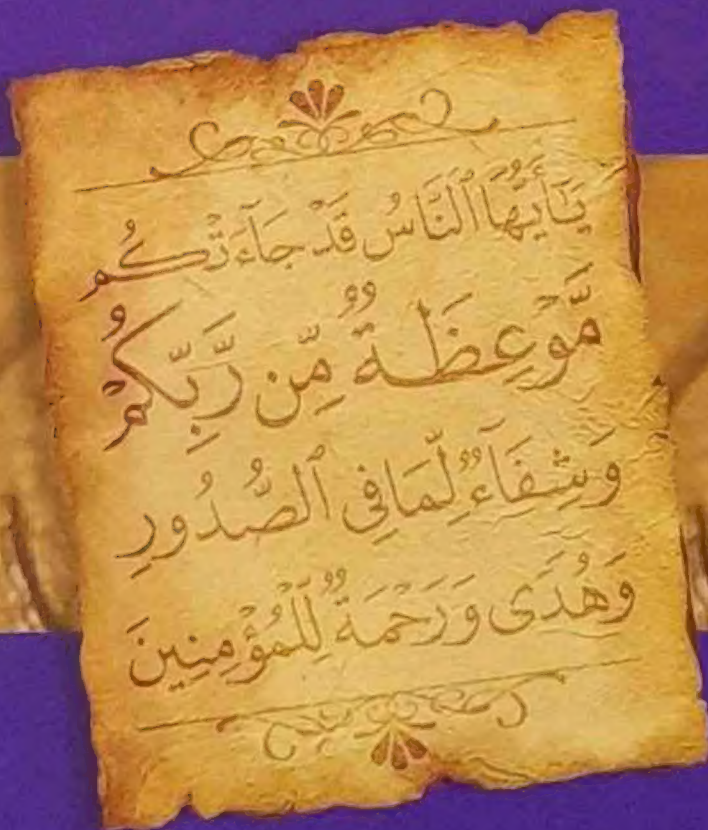 يَـٰٓأَيُّهَا ٱلنَّاسُ قَدْ جَآءَتْكُم
مَّوْعِظَةٌ مِّن رَّبِّكُمْ
وَشِفَآءٌ لِّمَا فِى ٱلصُّدُورِ
وَهُدًى وَرَحْمَةٌ لِّلْمُؤْمِنِينَ